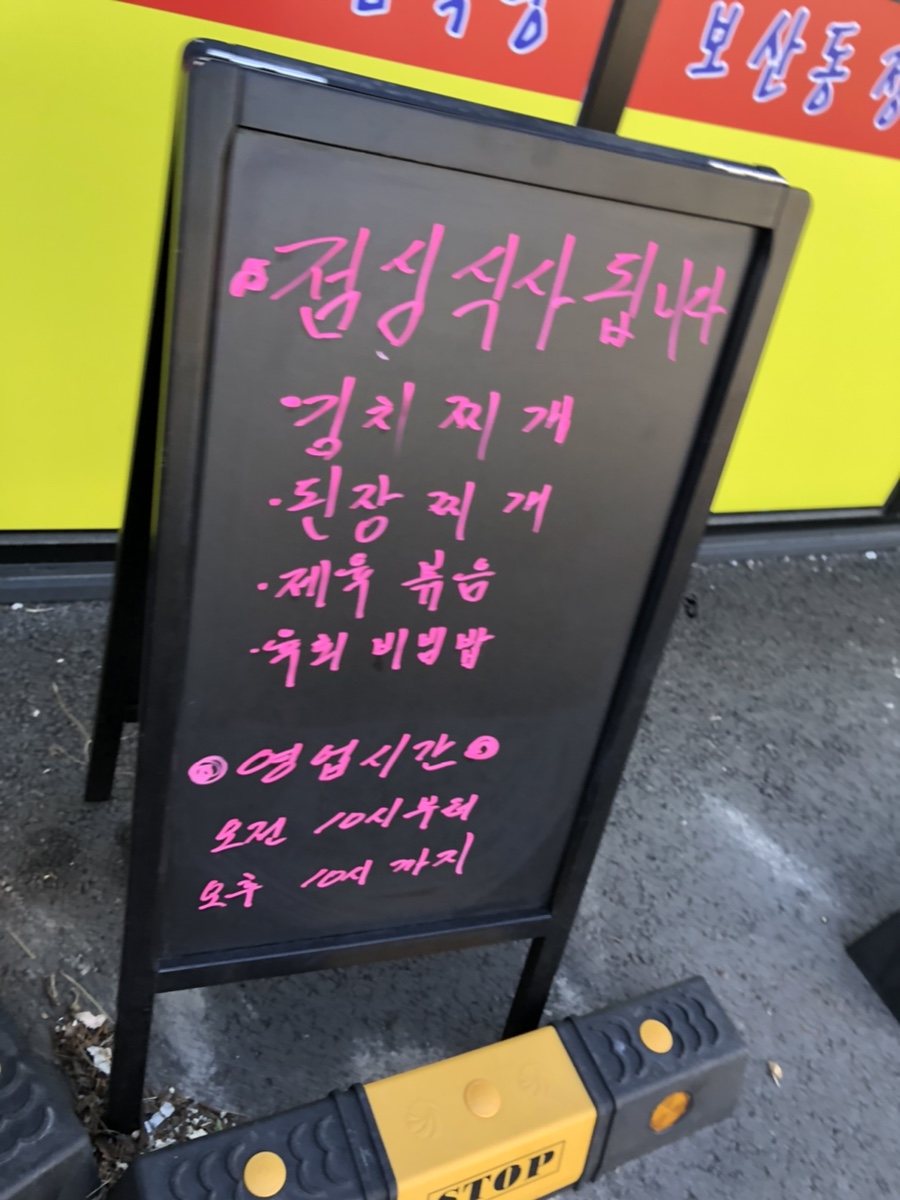 보산동
점심 식사 됩니다
김치 찌개
·된장 찌개
·제육 볶음
·육회 비빔밥
영업시간
오전 10시부터
오후 10시 까지
STOP